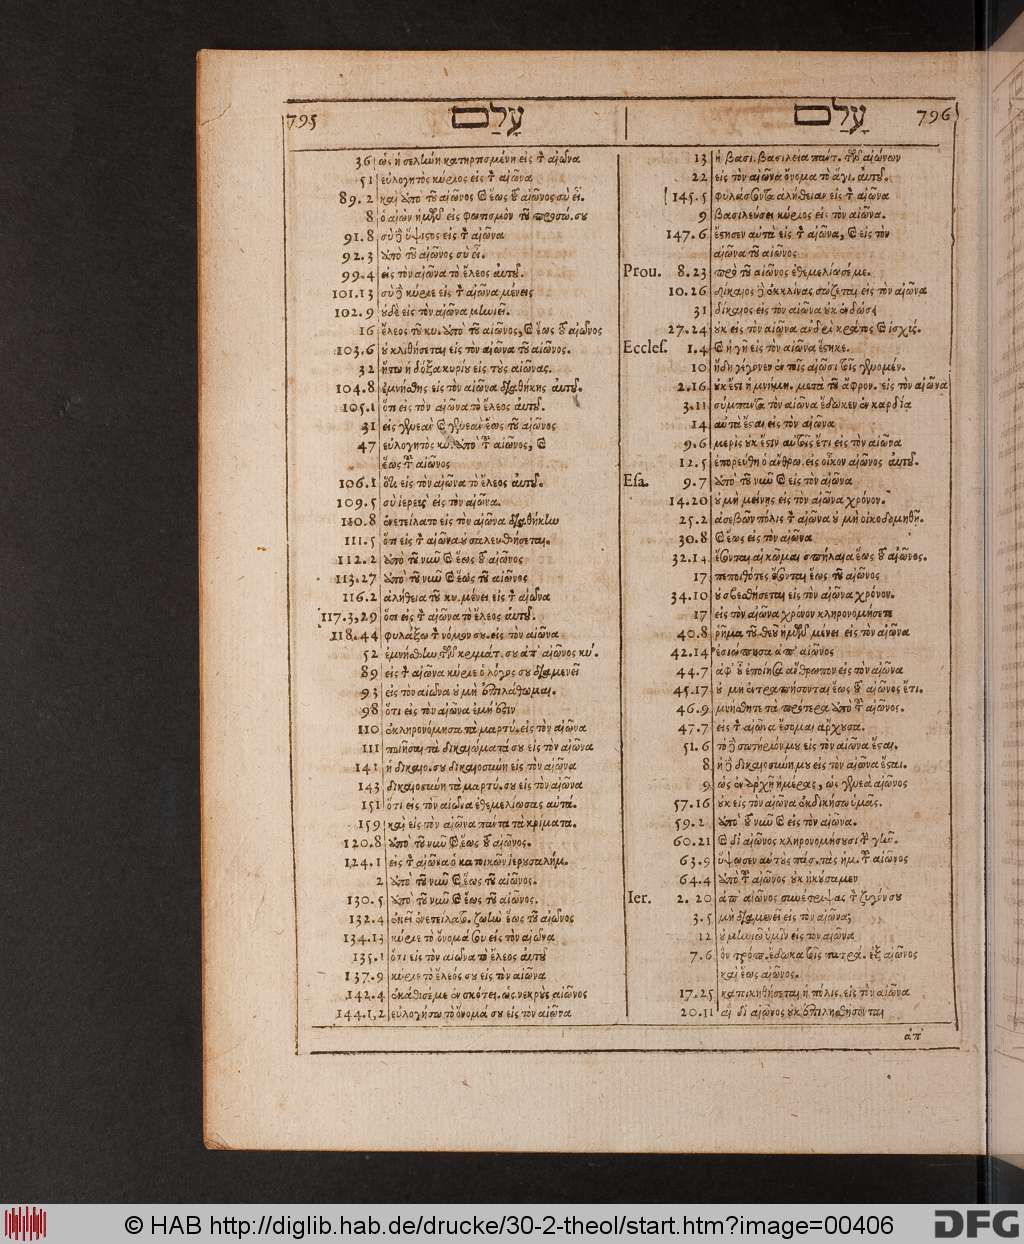 795 עָלַם
36 ὡς ἡ σελήνη κατηρτισμένη εἰς τ αἰῶνα
51 εὐλογητὸς κύριος εἰς τ αἰῶνα
89. 2 καὶ ἀπὸ τοῦ αἰῶνος καὶ ἕως τοῦ αἰῶνος σὺ εἶ.
8 ὁ αἰὼν ἡμῶν εἰς φωτισμὸν τοῦ προσώ. σου
91. 8 σὺ δὲ ὕψιστος εἰς τ αἰῶνα
92. 3 ἀπὸ τοῦ αἰῶνος σὺ εἶ.
99. 4 εἰς τὸν αἰῶνα τὸ ἔλεος αὐτοῦ.
101. 13 σὺ δὲ κύριε εἰς τ αἰῶνα μένεις
102. 9 οὐδὲ εἰς τὸν αἰῶνα μηνιεῖ.
16 ἔλεος τοῦ κυ. ἀπὸ τοῦ αἰῶνος, καὶ ἕως τοῦ αἰῶνος
103. 6 οὐ κλιθήσεται εἰς τὸν αἰῶνα τοῦ αἰῶνος.
32 ἤτω ἡ δόξα κυρίου εἰς τοὺς αἰῶνας.
104. 8 ἐμνήσθης εἰς τὸν αἰῶνα διαθήκης αὐτοῦ.
105. 1 ὅτι εἰς τὸν αἰῶνα τὸ ἔλεος αὐτοῦ.
31 εἰς γενεὰν καὶ γενεὰν ἕως τοῦ αἰῶνος
47 εὐλογητὸς κυ. ἀπὸ τοῦ αἰῶνος, καὶ
ἕως τοῦ αἰῶνος
106. 1 ὅτι εἰς τὸν αἰῶνα τὸ ἔλεος αὐτοῦ.
109. 5 σὺ ἱερεὺς εἰς τὸν αἰῶνα.
110. 8 ἐνετείλατο εἰς τὸν αἰῶνα διαθήκην
111. 5 ὅτι εἰς τ αἰῶνα οὐ σαλευθήσεται.
112. 2 ἀπὸ τοῦ νῦν καὶ ἕως τοῦ αἰῶνος
113. 27 ἀπὸ τοῦ νῦν καὶ ἕως τοῦ αἰῶνος
116. 2 ἀλήθεια τοῦ κυ. μένει εἰς τ αἰῶνα
117. 3, 29 ὅτι εἰς τ αἰῶνα τὸ ἔλεος αὐτοῦ.
118. 44 φυλάξω τ νόμον σου. εἰς τὸν αἰῶνα
52 ἐμνήσθην τῶν κριμάτ. σου ἀπ' αἰῶνος κύ.
89 εἰς τ αἰῶνα κύριε ὁ λόγος σου διαμενεῖ
93 εἰς τὸν αἰῶνα οὐ μὴ ἐπιλάθωμαι.
98 ὅτι εἰς τὸν αἰῶνα ἐμή ἐστιν
110 ἐκληρονόμησα τὰ μαρτύ. εἰς τὸν αἰῶνα
111 ποιῆσαι τὰ δικαιώματά σου εἰς τὸν αἰῶνα
141 ἡ δικαιο. σου δικαιοσύνη εἰς τὸν αἰῶνα
143 δικαιοσύνη τὰ μαρτύ. σου εἰς τὸν αἰῶνα
151 ὅτι εἰς τὸν αἰῶνα ἐθεμελίωσας αὐτά.
159 καὶ εἰς τὸν αἰῶνα πάντα τὰ κρίματα.
120. 8 ἀπὸ τοῦ νῦν καὶ ἕως τοῦ αἰῶνος.
124. 1 εἰς τ αἰῶνα ὁ κατοικῶν ἱερουσαλήμ.
2 ἀπὸ τοῦ νῦν καὶ ἕως τοῦ αἰῶνος.
130. 5 ἀπὸ τοῦ νῦν καὶ ἕως τοῦ αἰῶνος.
132. 4 ἐκεῖ ἐνετείλατο. ζωὴν ἕως τοῦ αἰῶνος
134. 13 κύριε τὸ ὄνομά σου εἰς τὸν αἰῶνα
135. 1 ὅτι εἰς τὸν αἰῶνα τὸ ἔλεος αὐτοῦ
137. 9 κύριε τὸ ἔλεός σου εἰς τὸν αἰῶνα
142. 4 ἐκάθισέ με ἐν σκότει. ὡς νεκροὺς αἰῶνος
144. 1, 2 εὐλογήσω τὸ ὄνομά σου εἰς τὸν αἰῶνα
עָלַם 796
13 ἡ βασι. βασιλεία πάντ. τῶν αἰώνων
22 εἰς τὸν αἰῶνα ὄνομα τὸ ἅγι. αὐτοῦ.
145. 5 φυλάσσοντα ἀλήθειαν εἰς τ αἰῶνα
9 βασιλεύσει κύριος εἰς τὸν αἰῶνα.
147. 6 ἔστησεν αὐτὰ εἰς τ αἰῶνα, καὶ εἰς τὸν
αἰῶνα τοῦ αἰῶνος
Prou. 8. 23 πρὸ τοῦ αἰῶνος ἐθεμελίωσέ με.
10. 26 δίκαιος δὲ ἐκκλίνας σώζεται εἰς τὸν αἰῶνα
31 δίκαιος εἰς τὸν αἰῶνα οὐκ ἐνδώσει
27. 24 οὐκ εἰς τὸν αἰῶνα ἀνδρὶ κράτος καὶ ἰσχύς.
Eccles. 1. 4 καὶ ἡ γῆ εἰς τὸν αἰῶνα ἕστηκε.
10 ἤδη γέγονεν ἐν τοῖς αἰῶσι τοῖς γενομέν.
2. 16 οὐκ ἔστι ἡ μνήμη. μετὰ τοῦ ἄφρον. εἰς τὸν αἰῶνα
3. 11 σύμπαντα τὸν αἰῶνα ἔδωκεν ἐν καρδίᾳ
14 αὐτὰ ἔσται εἰς τὸν αἰῶνα
9. 6 μερὶς οὐκ ἔστιν αὐτοῖς ἔτι εἰς τὸν αἰῶνα
12. 5 ἐπορεύθη ὁ ἄνθρω. εἰς οἶκον αἰῶνος αὐτοῦ.
Esa. 9. 7 ἀπὸ τοῦ νῦν καὶ εἰς τὸν αἰῶνα
14. 20 οὐ μὴ μείνῃς εἰς τὸν αἰῶνα χρόνον.
25. 2 ἀσεβῶν πόλις τ αἰῶνα οὐ μὴ οἰκοδομηθῇ.
30. 8 καὶ ἕως εἰς τὸν αἰῶνα
32. 14 ἔσονται αἱ κῶμαι σπήλαια ἕως τοῦ αἰῶνος.
17 πεποιθότες ἔσονται ἕως τοῦ αἰῶνος
34. 10 οὐ σβεσθήσεται εἰς τὸν αἰῶνα χρόνον.
17 εἰς τὸν αἰῶνα χρόνον κληρονομήσετε
40. 8 ῥῆμα τοῦ θεοῦ ἡμῶν μένει εἰς τὸν αἰῶνα
42. 14 ἐσιώπησα ἀπ' αἰῶνος
44. 7 ἀφ' οὗ ἐποίησα ἄνθρωπον εἰς τὸν αἰῶνα
45. 17 οὐ μὴ ἐντραπήσονται ἕως τοῦ αἰῶνος ἔτι.
46. 9 μνήσθητε τὰ πρότερα ἀπὸ τοῦ αἰῶνος.
47. 7 εἰς τ αἰῶνα ἔσομαι ἄρχουσα.
51. 6 τὸ δὲ σωτήριόν μου εἰς τὸν αἰῶνα ἔσται.
8 ἡ δὲ δικαιοσύνη μου εἰς τὸν αἰῶνα ἔσται.
9 ὡς ἐν ἀρχῇ ἡμέρας, ὡς γενεὰ αἰῶνος
57. 16 οὐκ εἰς τὸν αἰῶνα ἐκδικήσω ὑμᾶς.
59. 2 ἀπὸ τοῦ νῦν καὶ εἰς τὸν αἰῶνα.
60. 21 καὶ δι' αἰῶνος κληρονομήσουσι τ γῆν.
63. 9 ὕψωσεν αὐτοὺς πάσ. τὰς ἡμ. τοῦ αἰῶνος
64. 4 ἀπὸ τοῦ αἰῶνος οὐκ ἠκούσαμεν
Ier. 2. 20 ἀπ' αἰῶνος συνέτριψας τ ζυγόν σου
3. 5 μὴ διαμενεῖ εἰς τὸν αἰῶνα;
12 οὐ μηνιῶ ὑμῖν εἰς τὸν αἰῶνα
7. 6 ὃν τρόπ. ἔδωκα τοῖς πατρά. ἐξ αἰῶνος
καὶ ἕως αἰῶνος.
17. 25 κατοικηθήσεται ἡ πόλις. εἰς τὸν αἰῶνα
20. 11 αἳ δι' αἰῶνος οὐκ ἐπιλησθήσονται
ἀπ'
© HAB http://diglib.hab.de/drucke/30-2-theol/start.htm?image=00406
DFG